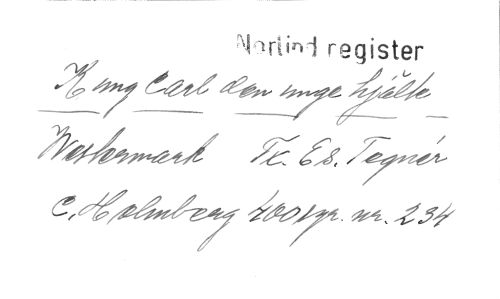 Norlind register
Kung Carl den unge hjälte
Westermark Tx. Es. Tegnér
C. Holmberg 400 sgr. nr. 234